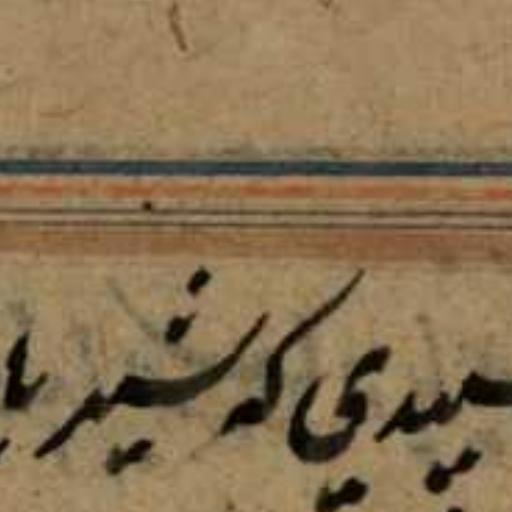 سپیدی که شیر با